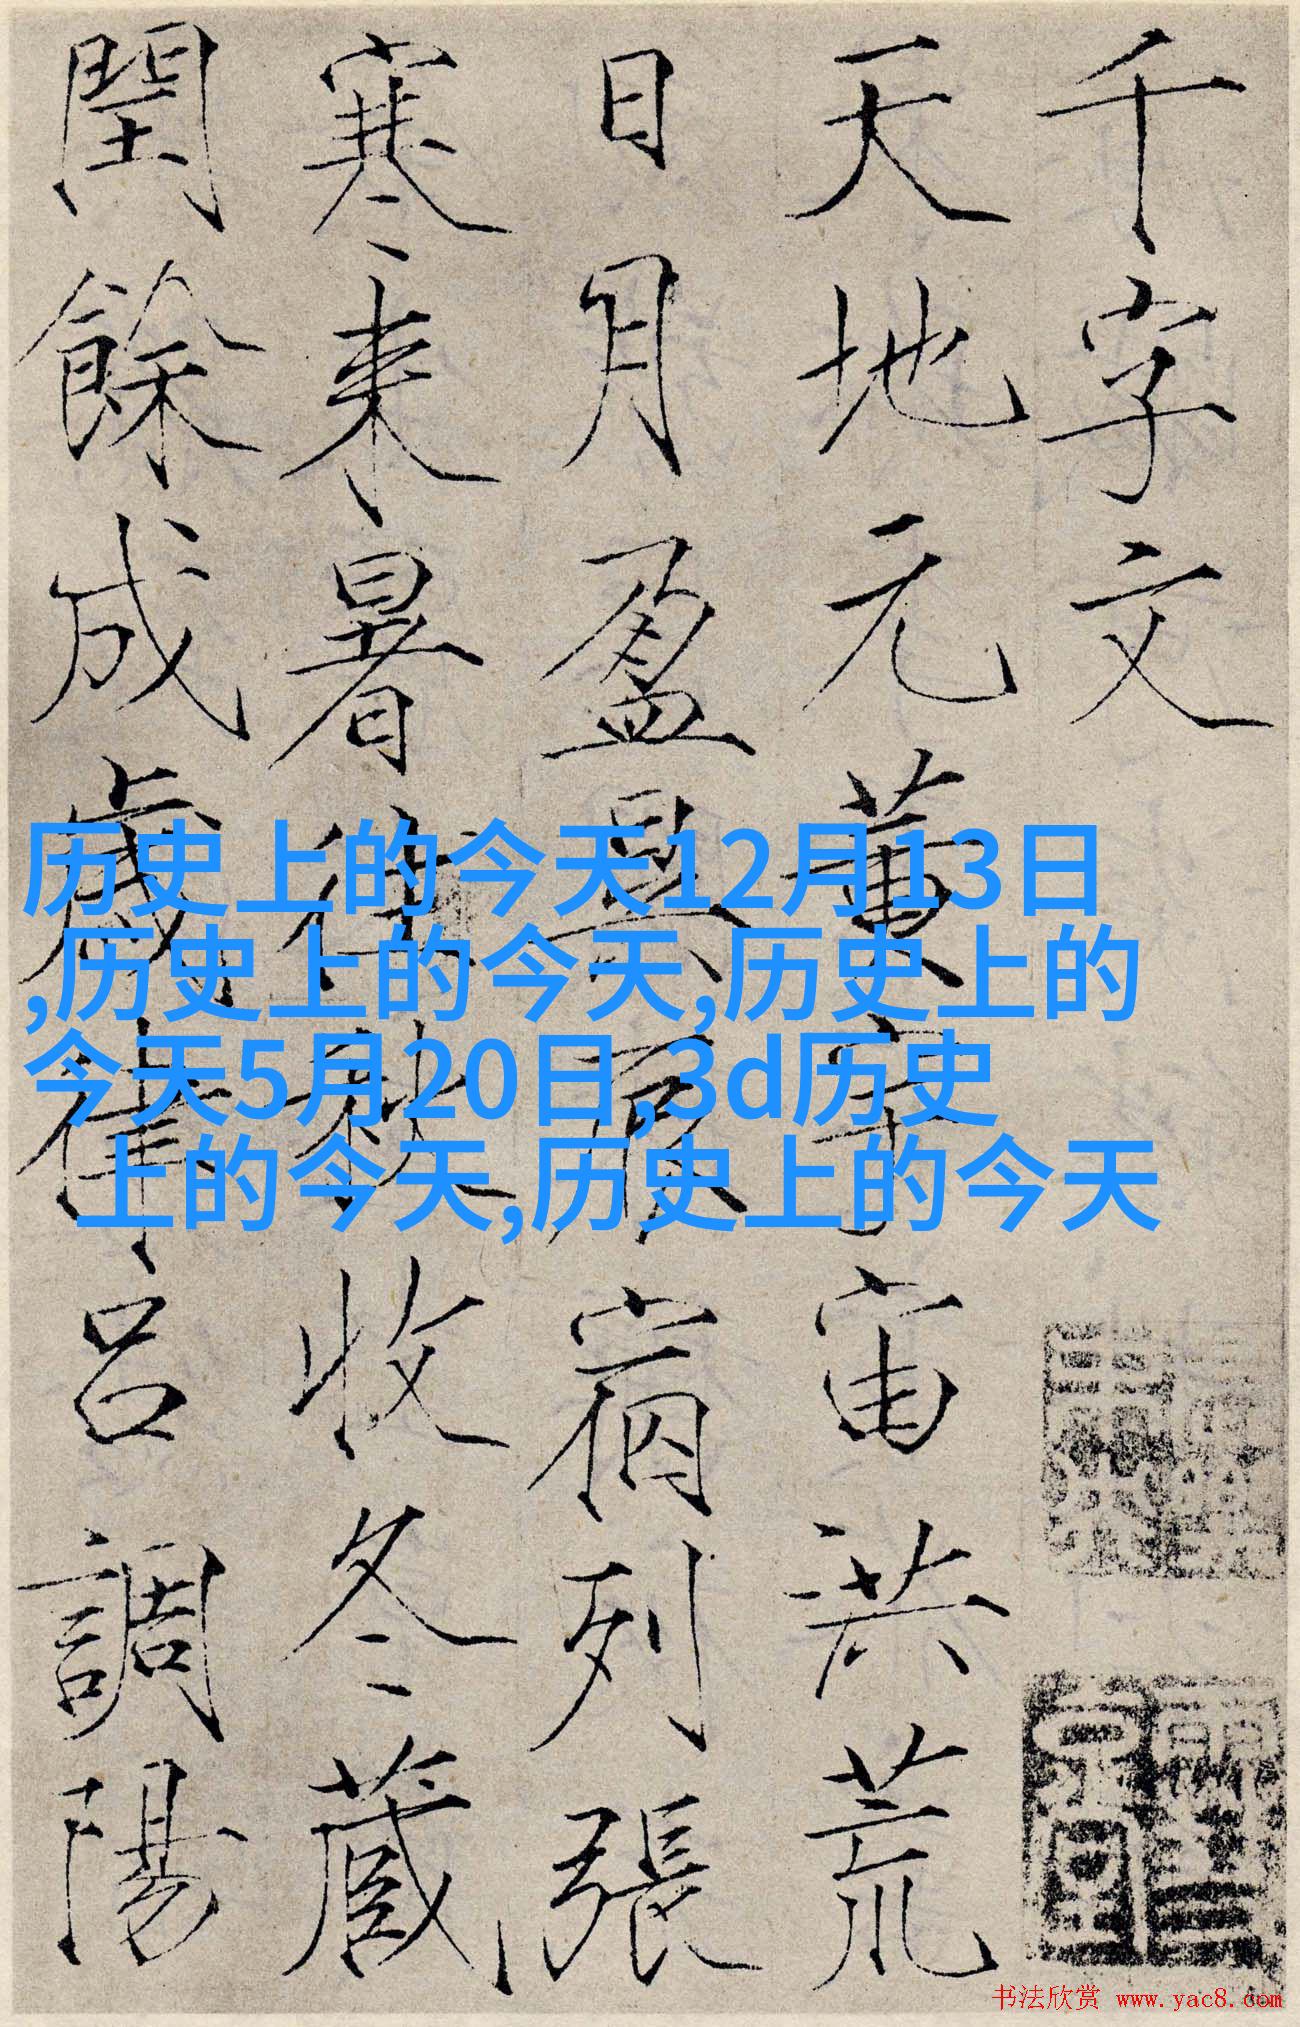 千字文
天地元黄宇宙洪荒
日月盈昃辰宿列張
寒来暑往秋收冬藏
閏餘成歲律呂調陽
历史上的今天12月13日
,历史上的今天,历史上的
今天5月20日,3d历史
上的今天,历史上的今天
书法欣赏 www.yac8.com